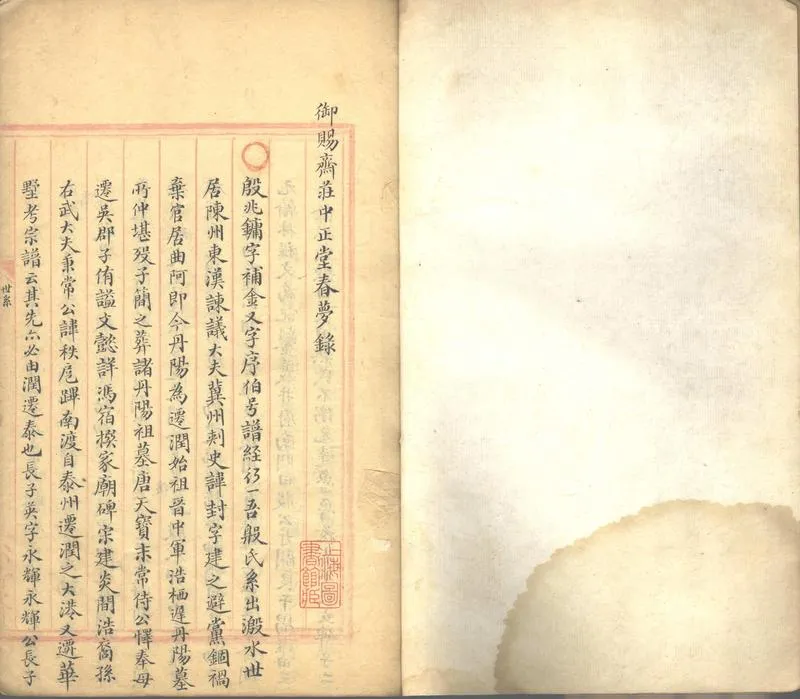 御賜齋莊中正堂春夢錄
殷兆鏞字補金又字序伯号譜経行一吾殷氏系出瀫水世
居陳州東漢諫議大夫冀州刺史諱封字建之避黨錮禍
棄官居曲阿即今丹陽為遷潤始祖晉中軍浩栖遲丹陽墓
所仲堪歿子簡之葬諸丹陽祖墓唐天寶末常侍公懌奉母
遷吳郡子侑謚文懿詳馮宿撰家廟碑宗建炎間浩裔孫
右武大夫秉常公諱秩扈蹕南渡自泰州遷潤之大港又遷華
墅考宗譜云其先亦必由潤遷泰也長子英字永輝永輝公長子
世系
上海圖書館藏